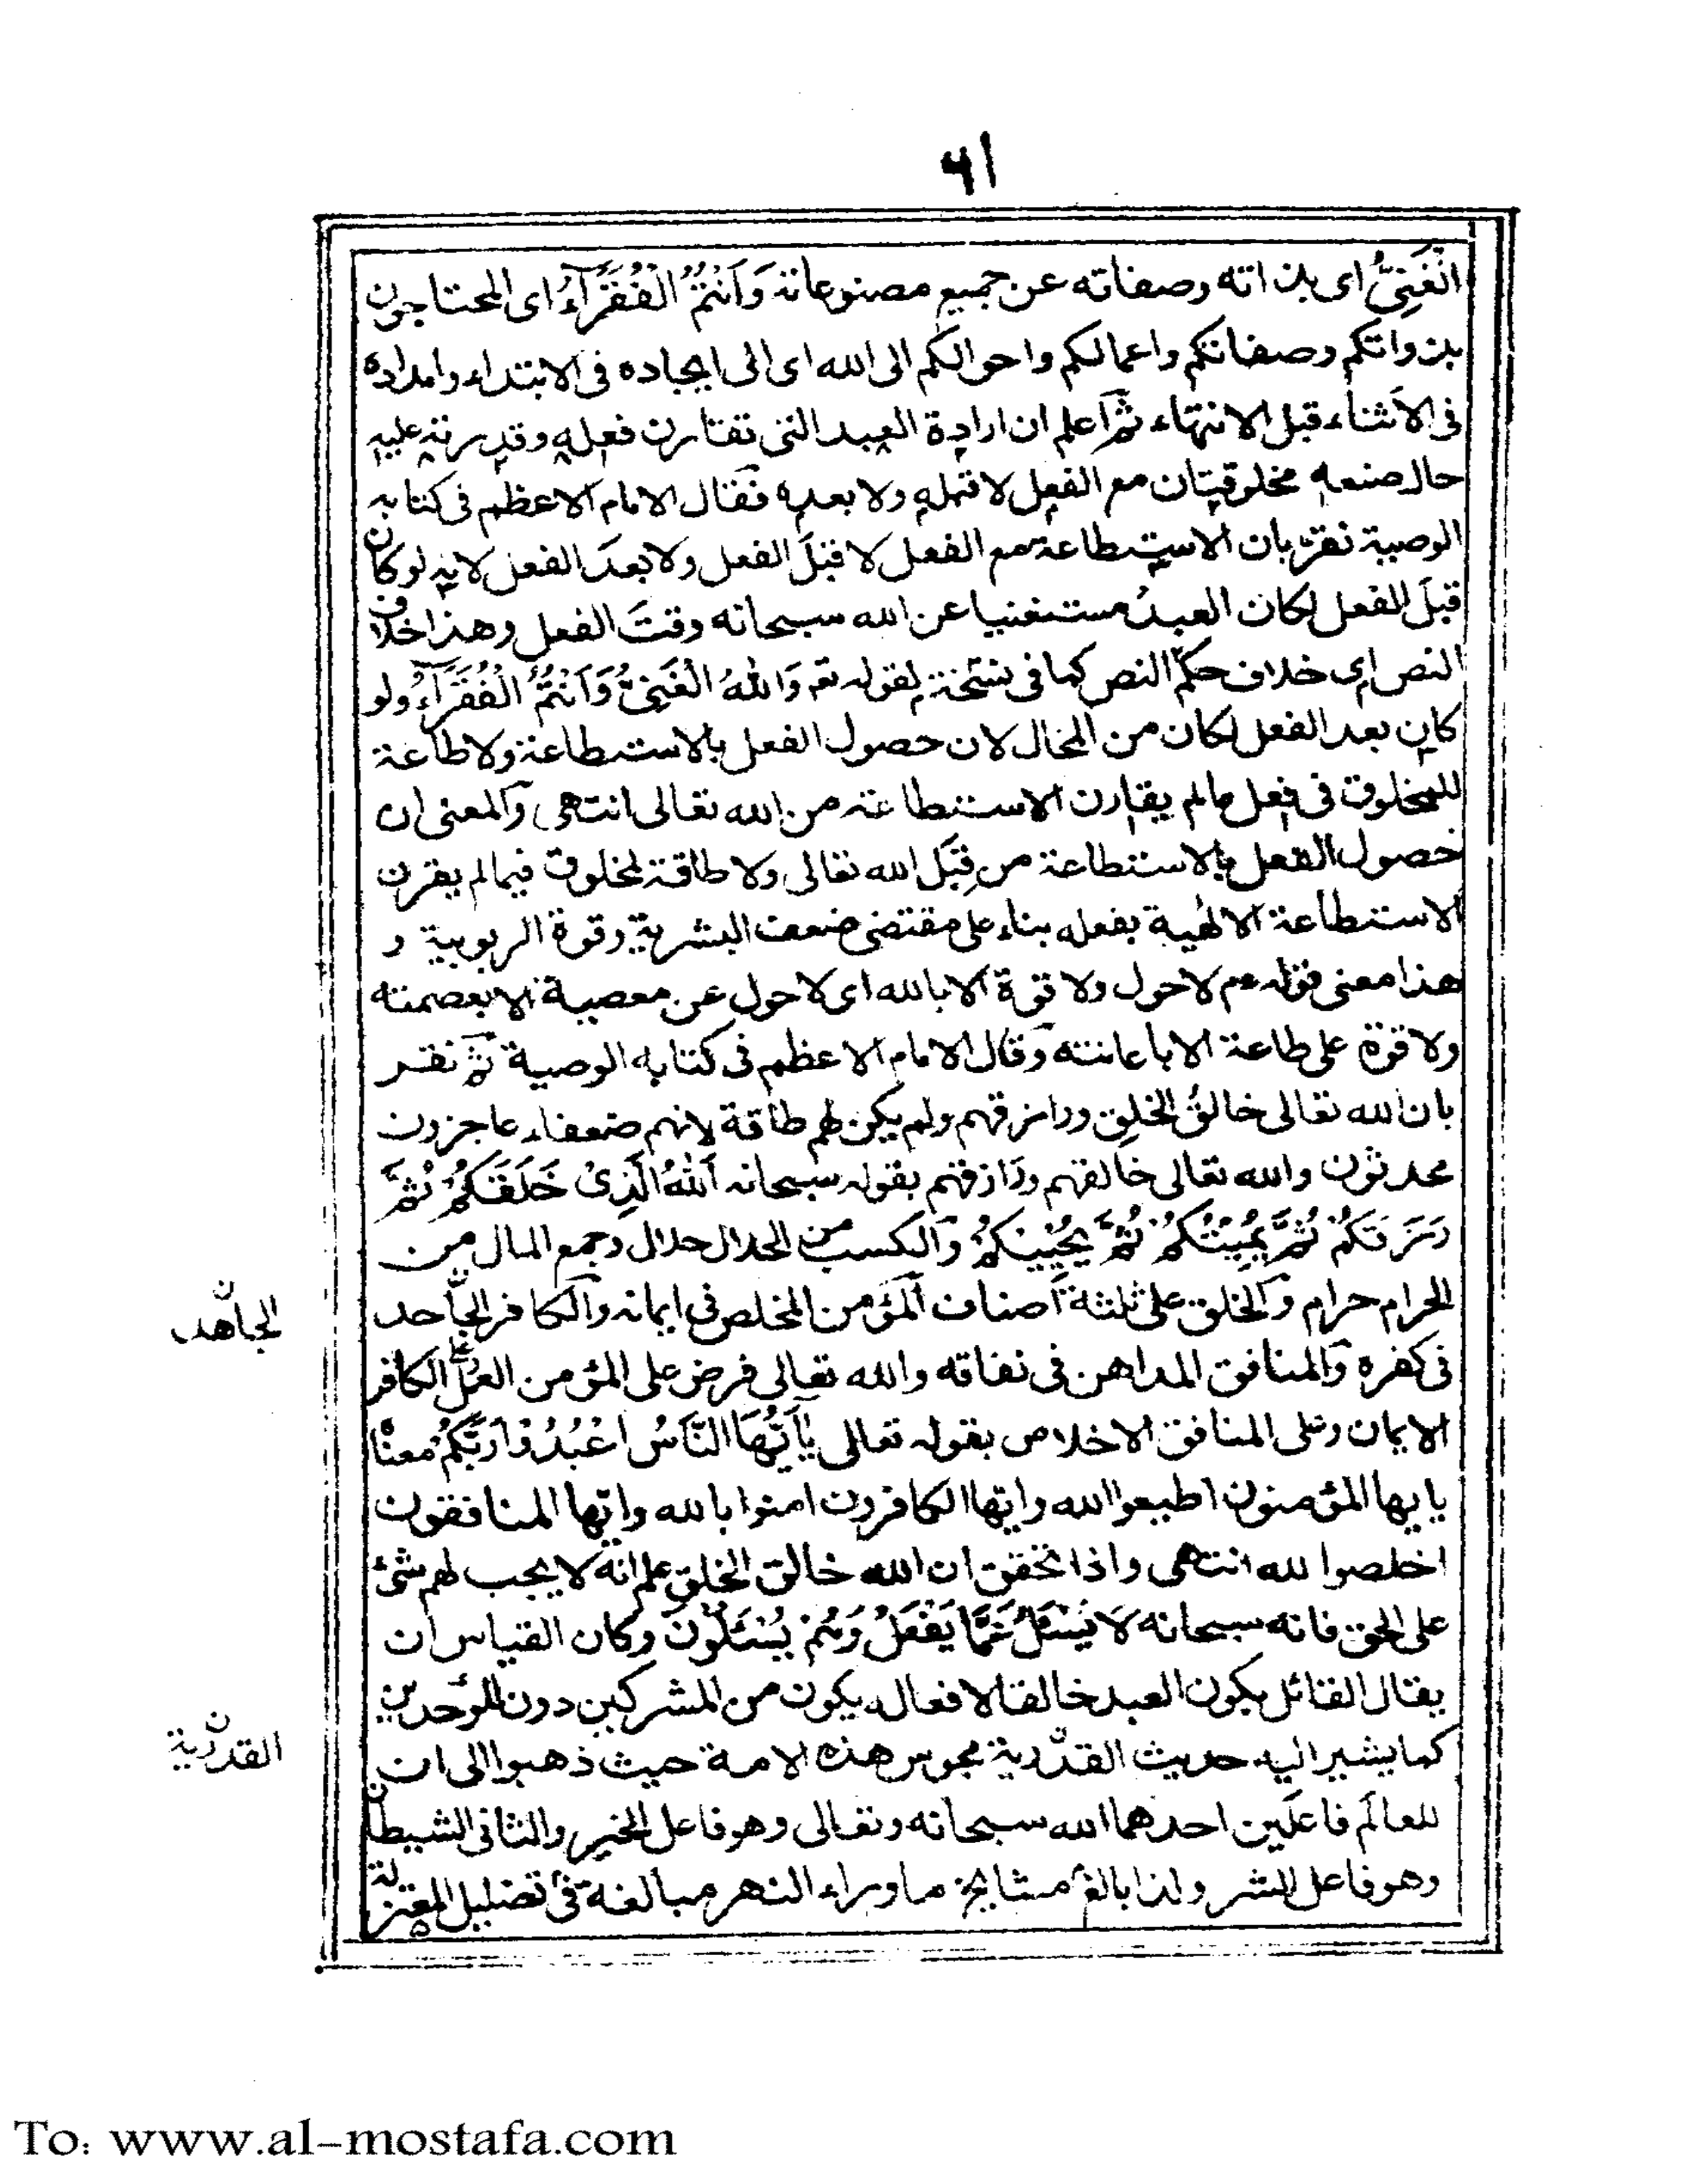 ٦١
الْغَنِىُّ اى بذاته وصفاته عن جميع مصنوعاته وَاَنْتُمُ الْفُقَرَآءُ اى المحتاجون
بذواتكم وصفاتكم واعمالكم واحوالكم الى الله اى الى ايجاده فى الابتداء وامداده
فى الاثناء قبل الانتهاء ثم اعلم ان ارادة العبد التى تقارن فعله وقدرته عليه
حال صنعه مخلوقتان مع الفعل لا قبله ولا بعده فقال الامام الاعظم فى كتابه
الوصية نقر بان الاستطاعة مع الفعل لا قبلَ الفعل ولا بعدَ الفعل لانه لو كان
قبلَ الفعل لكان العبدُ مستغنيا عن الله سبحانه وقتَ الفعل وهذا خلاف
النص اى خلاف حكم النص كما فى نسخة لقوله تع وَاللهُ الْغَنِىُّ وَاَنْتُمُ الْفُقَرَآءُ ولو
كان بعد الفعل لكان من المحال لان حصول الفعل بالاستطاعة ولا طاعة
للمخلوق فى فعل مالم يقارن الاستطاعة من الله تعالى انتهى والمعنى ان
حصول الفعل بالاستطاعة من قِبَل الله تعالى ولا طاقة لمخلوق فيمالم يقرن
الاستطاعة الالهية بفعله بناء على مقتضى ضعف البشرية وقوة الربوبية و
هذا معنى قوله عم لا حول ولا قوة الا بالله اى لا حول عن معصية الا بعصمته
ولا قوة على طاعة الا باعانته وقال الامام الاعظم فى كتابه الوصية ثم نقر
بان الله تعالى خالقُ الخلق ورازقهم ولم يكن لهم طاقة لانهم ضعفاء عاجزون
محدثون والله تعالى خالقهم ورازقهم بقوله سبحانه اَللهُ الَّذِىْ خَلَقَكُمْ ثُمَّ
رَزَقَكُمْ ثُمَّ يُمِيْتُكُمْ ثُمَّ يُحْيِيْكُمْ والكسب من الحلال حلال وجمع المال من
الحرام حرام والخلق على ثلثة اصناف المؤمن المخلص فى ايمانه والكافر الجاحد
الجاهد
فى كفره والمنافق المداهن فى نفاقه والله تعالى فرض على المؤمن العمل على الكافر
الايمان وعلى المنافق الاخلاص بقوله تعالى يٰاَيُّهَا النَّاسُ اعْبُدُوْا رَبَّكُمْ معناه
يايها المؤمنون اطيعوا الله وايها الكافرون امنوا بالله وايها المنافقون
اخلصوا لله انتهى واذا تحقق ان الله خالق الخلق علم انه لا يجب لهم شئ
على الحق فانه سبحانه لَا يُسْئَلُ عَمَّا يَفْعَلُ وَهُمْ يُسْئَلُوْنَ وكان القياس ان
يقال القائل بكون العبد خالقا لافعاله يكون من المشركين دون الموحدين
كما يشير اليه حديث القدرية مجوس هذه الامة حيث ذهبوا الى ان
القدرية
للعالَم فاعلَين احدهما الله سبحانه وتعالى وهو فاعل الخير والثانى الشيطان
وهو فاعل الشر ولذا بالغ مشايخ ما وراء النهر مبالغة فى تضليل المعتزلة
To: www.al-mostafa.com